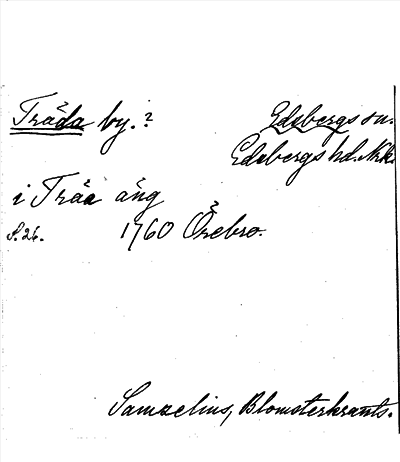 Träda by.? Edsbergs sn.
Edsbergs hd. Nrk.
i Träa äng
S. 26. 1760 Örebro.
Samzelius, Blomsterkrants.